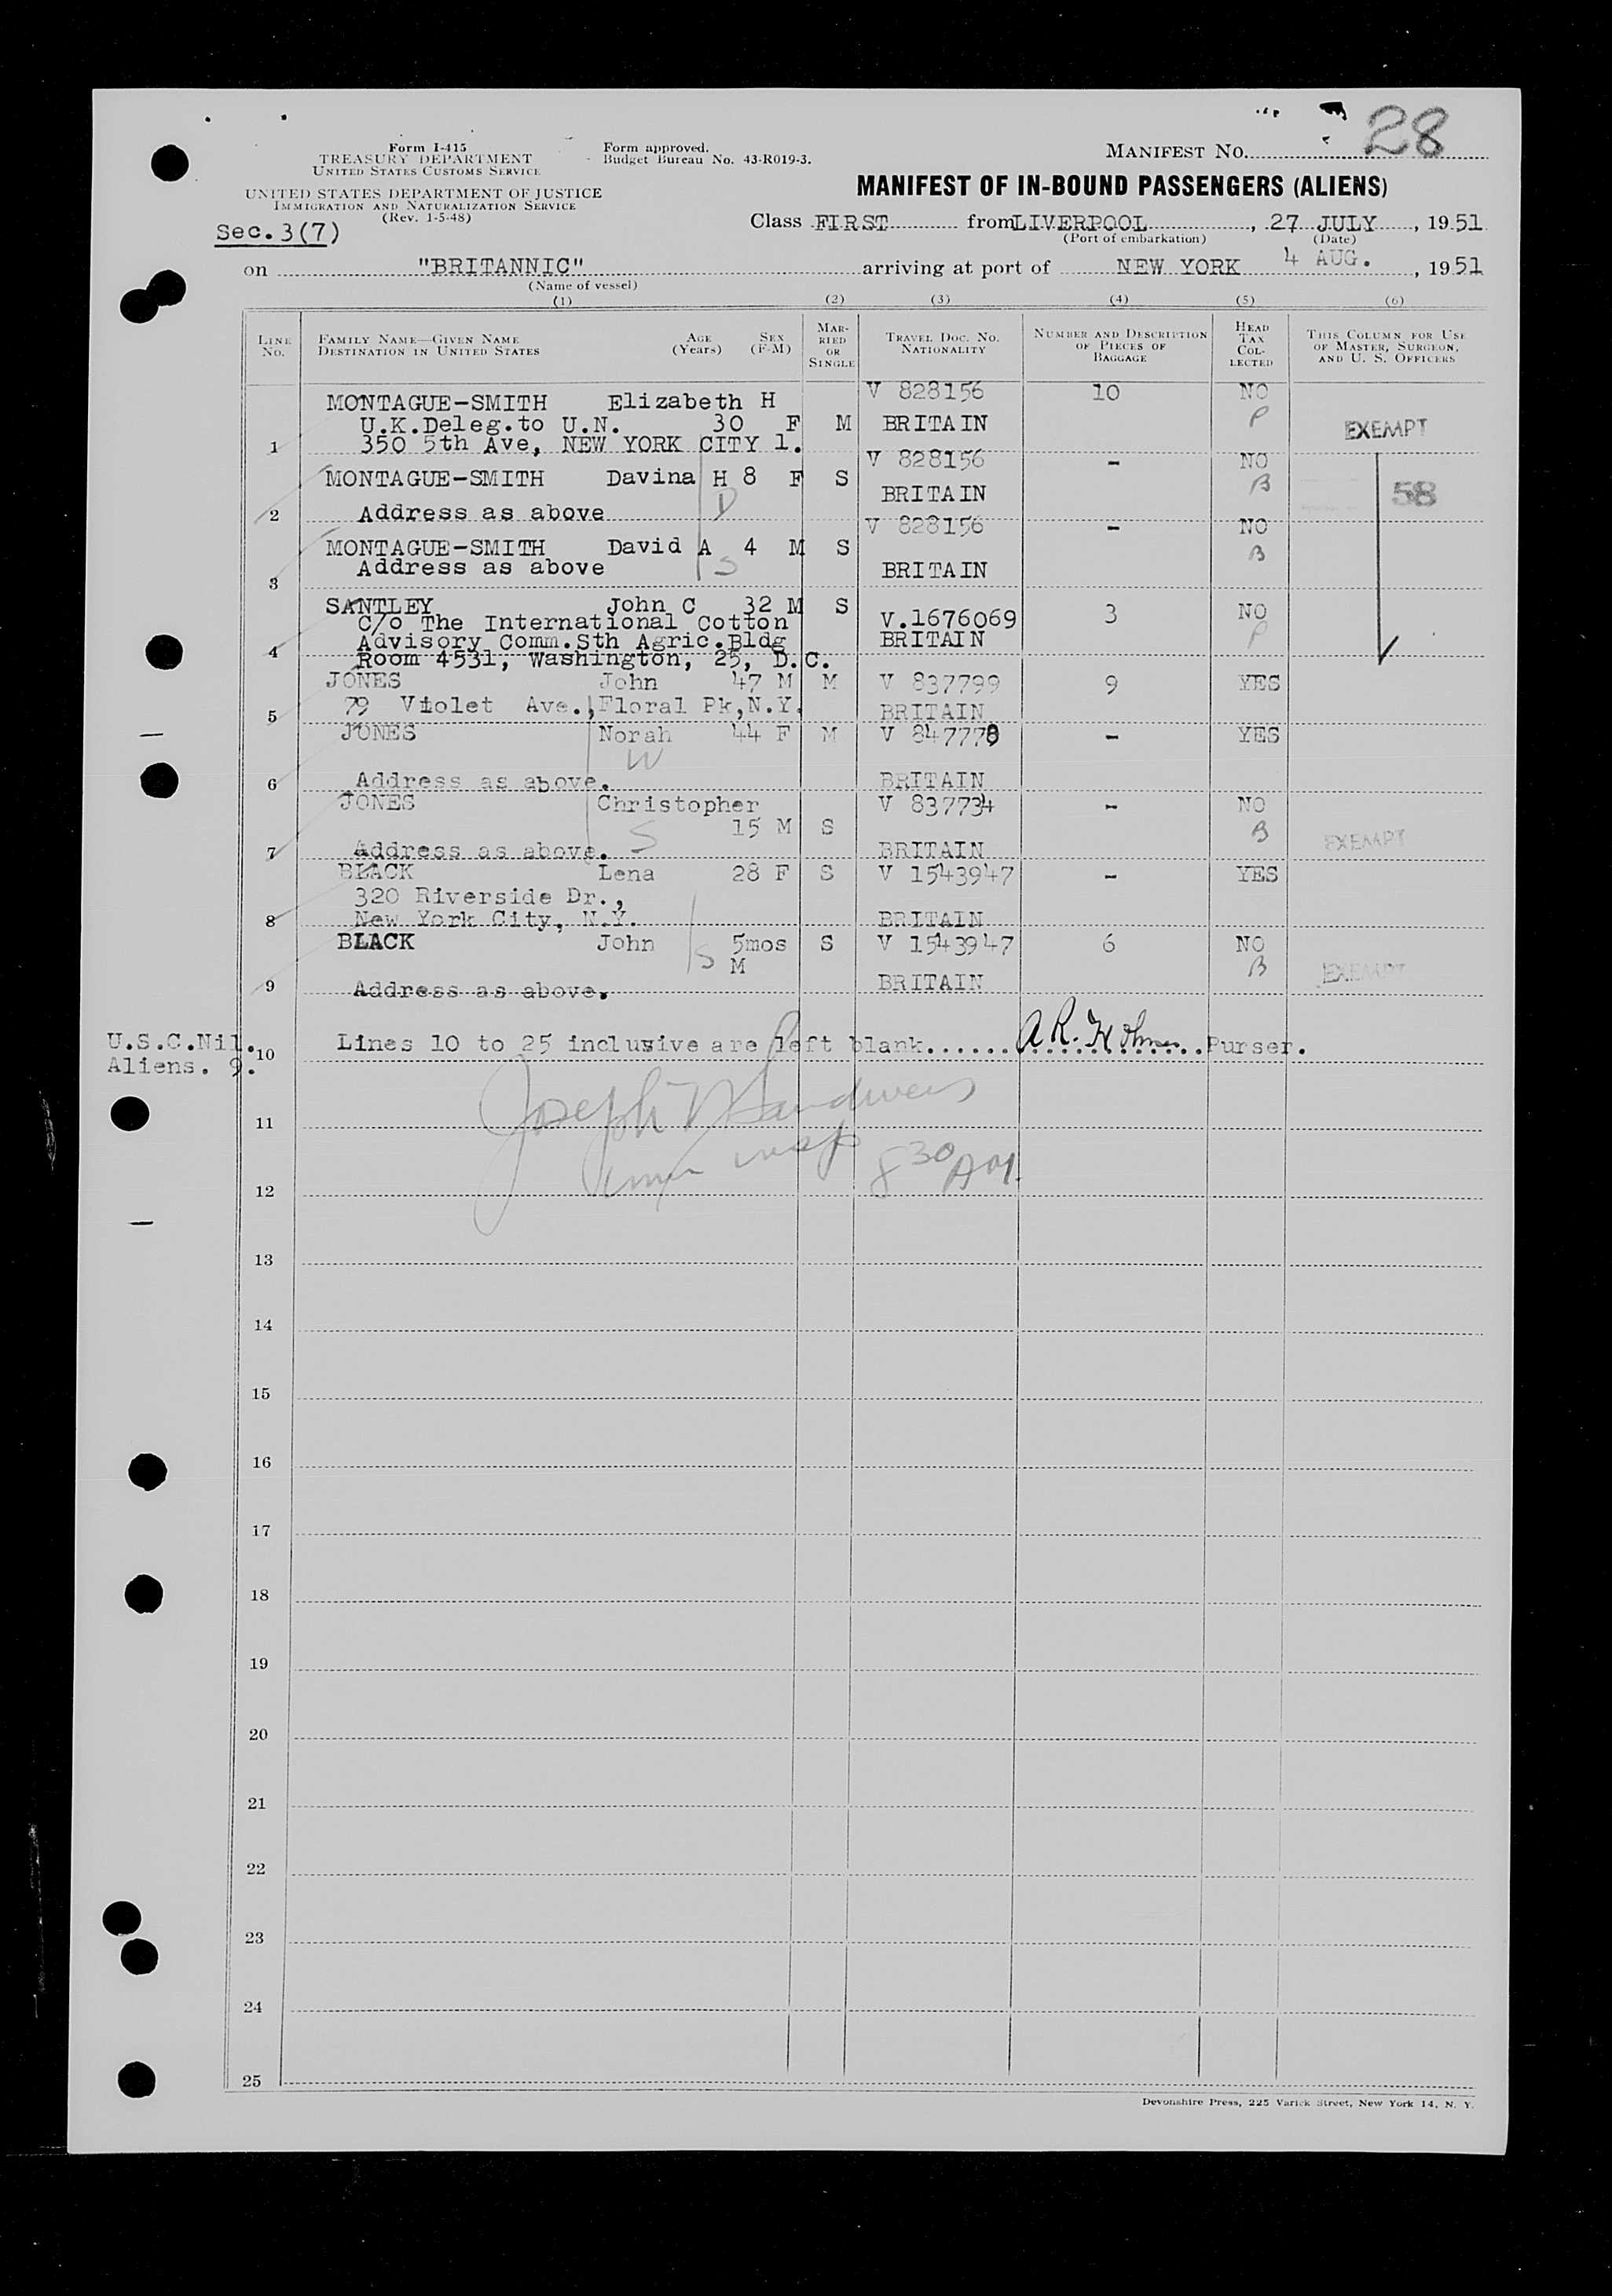 28
Form I-415
TREASURY DEPARTMENT
UNITED STATES CUSTOMS SERVICE
Form approved.
Budget Bureau No. 43-R019-3.
MANIFEST NO.
UNITED STATES DEPARTMENT OF JUSTICE
IMMIGRATION AND NATURALIZATION SERVICE
(Rev. 1-5-48)
MANIFEST OF IN-BOUND PASSENGERS (ALIENS)
Sec.3(7)
Class FIRST from LIVERPOOL, 27 JULY, 1951
(Port of embarkation) (Date)
on "BRITANNIC" arriving at port of NEW YORK 4 AUG., 1951
(Name of vessel)
(1) (2) (3) (4) (5) (6)
LINE NO.
FAMILY NAME—GIVEN NAME
DESTINATION IN UNITED STATES
AGE (Years)
SEX (F-M)
MARRIED OR SINGLE
TRAVEL DOC. NO. NATIONALITY
NUMBER AND DESCRIPTION OF PIECES OF BAGGAGE
HEAD TAX COLLECTED
THIS COLUMN FOR USE OF MASTER, SURGEON, AND U. S. OFFICERS
MONTAGUE-SMITH Elizabeth H V 828156 10 NO
U.K.Deleg.to U.N. 30 F M BRITAIN P EXEMPT
1 350 5th Ave, NEW YORK CITY 1.
V 828156 - NO
MONTAGUE-SMITH Davina H 8 F S BRITAIN B 58
2 Address as above D
V 828156 - NO
MONTAGUE-SMITH David A 4 M S B
Address as above S BRITAIN
3
SANTLEY John C 32 M S V.1676069 3 NO
C/o The International Cotton
Advisory Comm.Sth Agric.Bldg BRITAIN P
4 Room 4531, Washington, 25, D.C.
JONES John 47 M M V 837799 9 YES
5 79 Violet Ave., Floral Pk,N.Y. BRITAIN
JONES Norah 44 F M V 847778 - YES
W
6 Address as above. BRITAIN
JONES Christopher V 837734 - NO
15 M S B EXEMPT
7 Address as above. S BRITAIN
BLACK Lena 28 F S V 1543947 - YES
320 Riverside Dr.,
8 New York City, N.Y. BRITAIN
BLACK John 5mos S V 1543947 6 NO
S M B EXEMPT
9 Address as above. BRITAIN
U.S.C.Nil. 10 Lines 10 to 25 inclusive are left blank...... Purser.
Aliens. 9.
Joseph
11
8 30 AM.
12
13
14
15
16
17
18
19
20
21
22
23
24
25
Devonshire Press, 225 Varick Street, New York 14, N. Y.